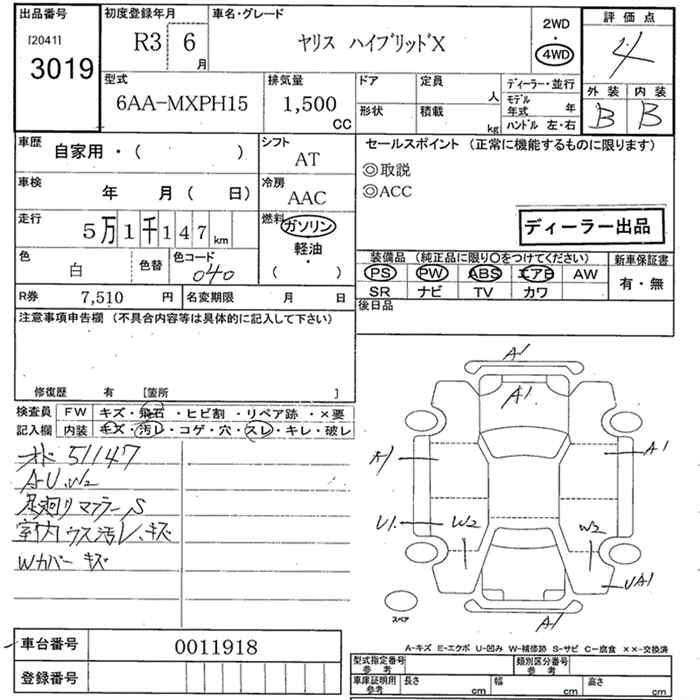 出品番号
[2041]
3019
初度登録年月
R3 6
月
車名・グレード
ヤリス ハイブリッドX
2WD
・
4WD
評価点
4
外装 内装
B B
型式
6AA-MXPH15
排気量
1,500
CC
ドア
定員
人
形状
積載
kg
ディーラー・並行
モデル
年式
年
ハンドル 左・右
車歴
自家用・( )
シフト
AT
セールスポイント (正常に機能するものに限ります)
◎取説
◎ACC
車検
年 月( 日)
冷房
AAC
走行
5万1千147km
燃料
ガソリン
軽油・
( )
ディーラー出品
色
白
色替
色コード
040
装備品 (純正品に限り○をつけてください)
PS PW ABS エアB AW
SR ナビ TV カワ
新車保証書
有・無
R券 7,510 円
名変期限 月 日
後日品
注意事項申告欄 (不具合内容等は具体的に記入して下さい)
修復歴 有 [箇所 ]
検査員
記入欄
FW キズ・飛石・ヒビ割・リペア跡・×要
内装 キズ・汚レ・コゲ・穴・スレ・キレ・破レ
51147
A-U.W2
足廻リマフラーS
室内ウス汚レ、キズ
Wカバーキズ
A1
A1
A1
A1
U1.
W2
W2
UA1
A1
スペア
A-キズ E-エクボ U-凹み W-補修跡 S-サビ C-腐食 ××-交換済
車台番号 0011918
登録番号
型式指定番号
参考
類別区分番号
参考
車庫証明用
参考
長さ cm
幅 cm
高さ cm